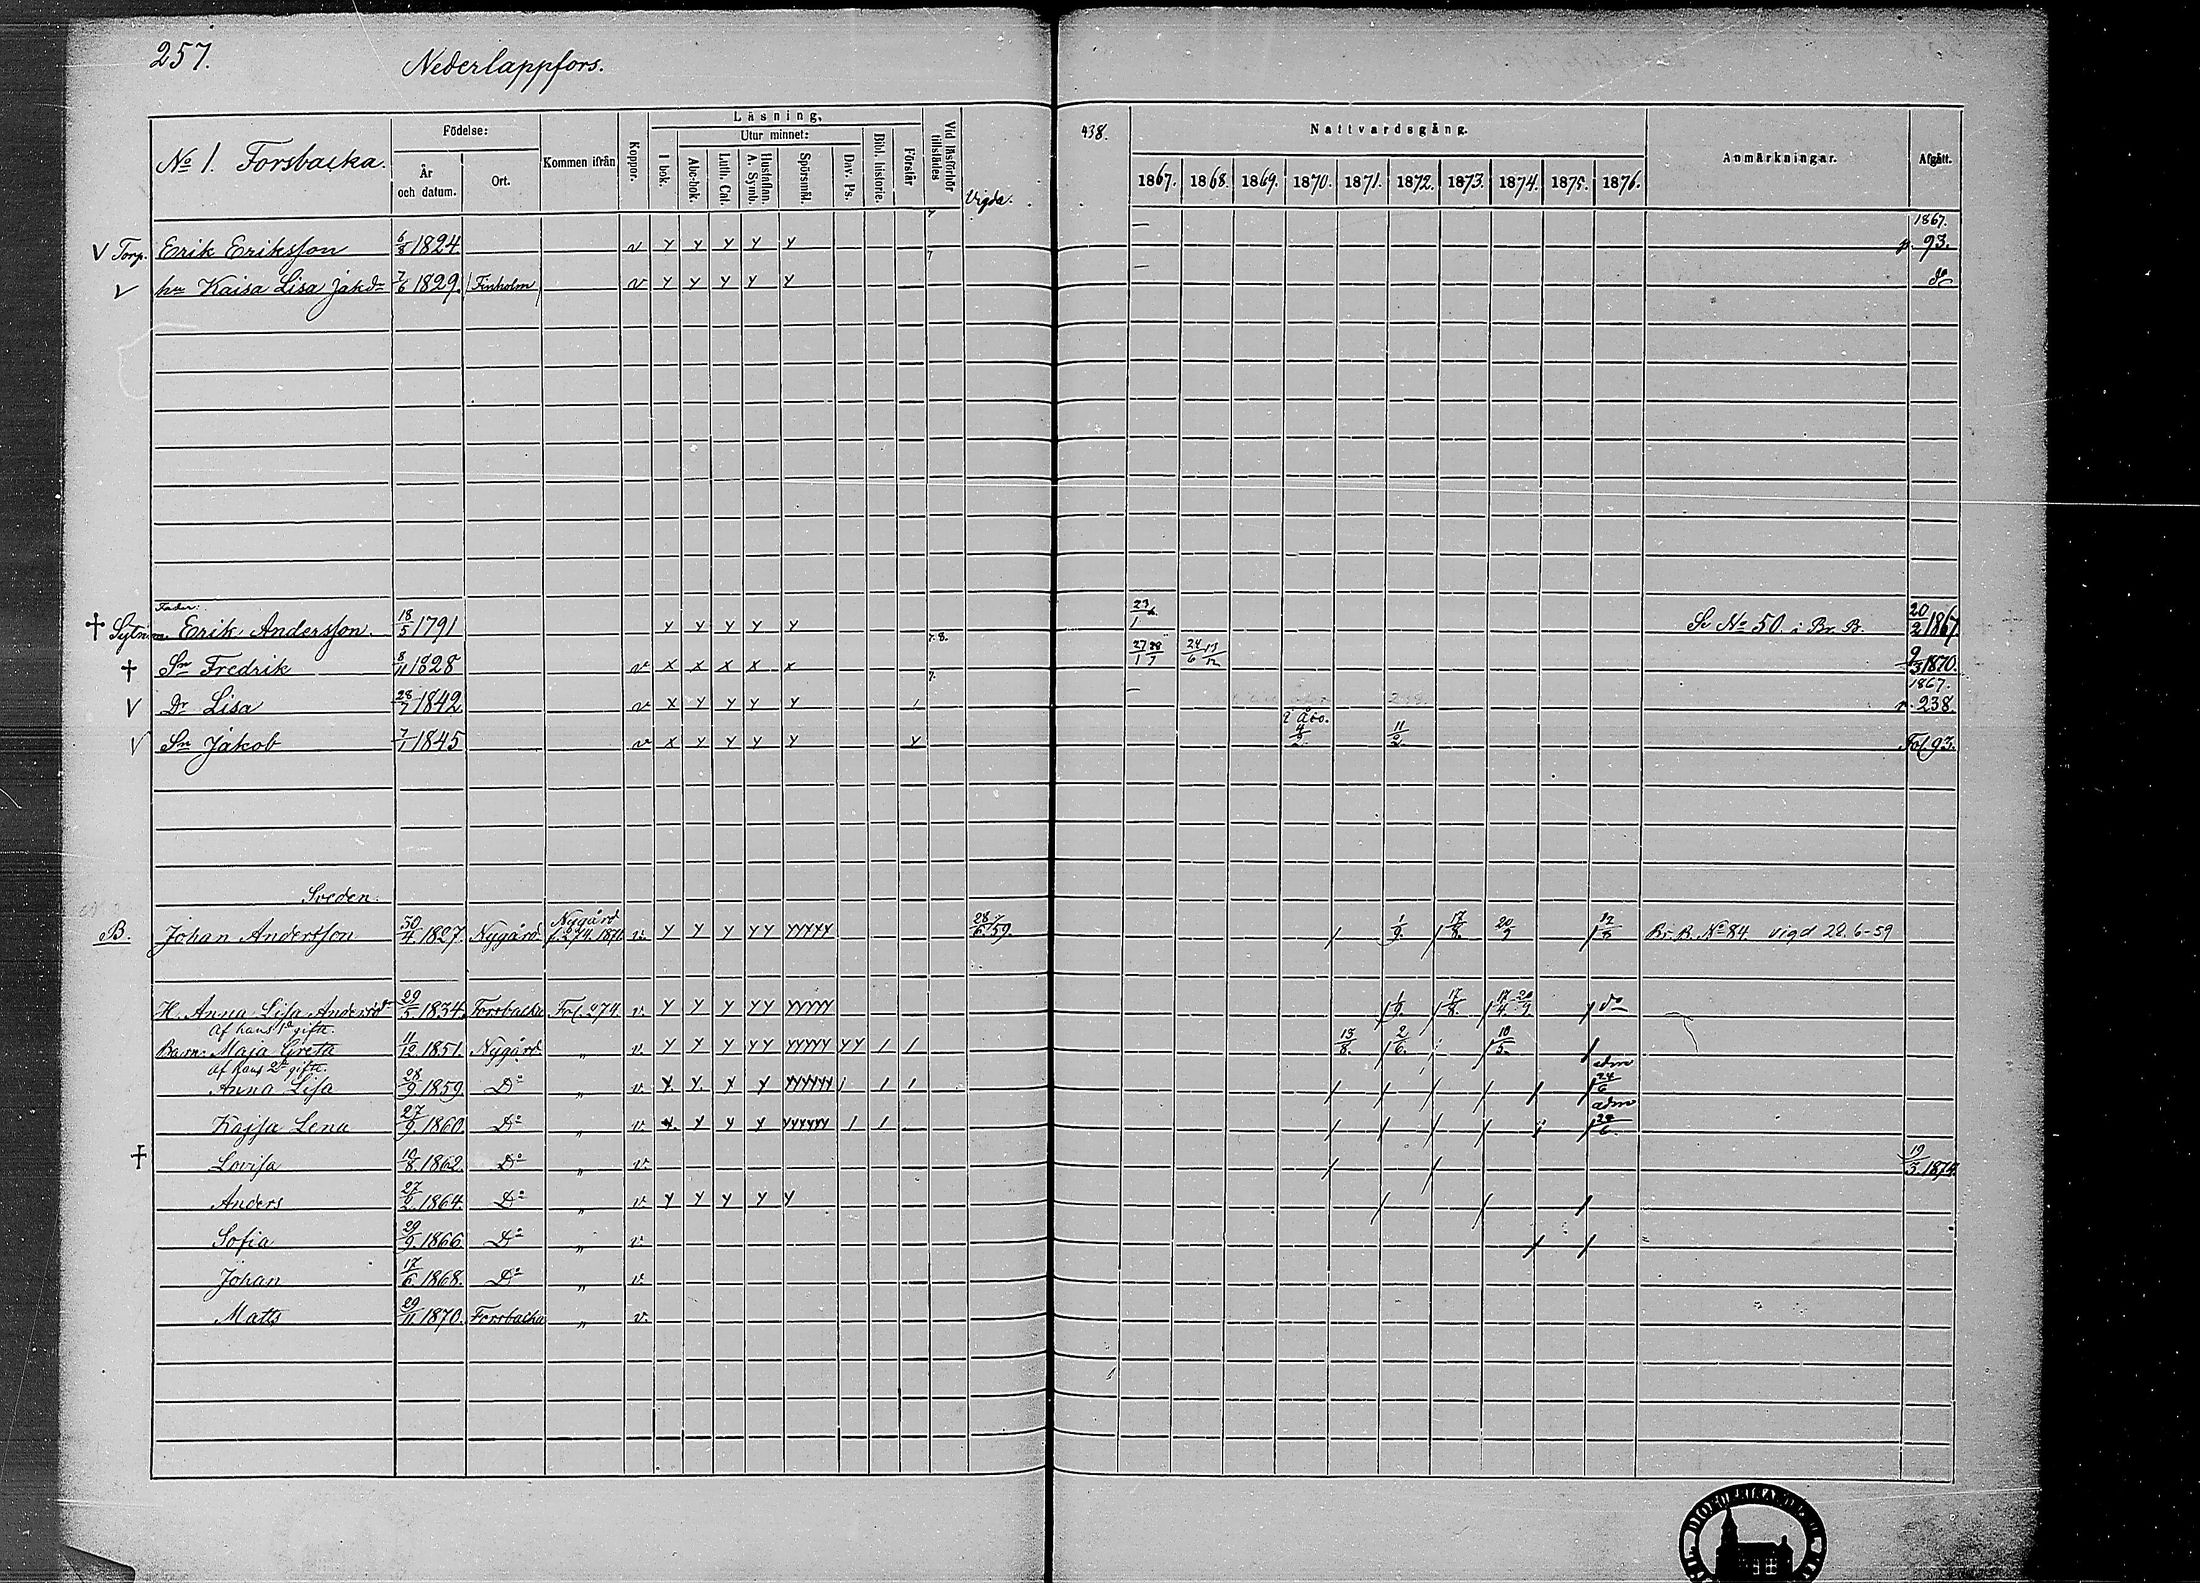 257.
Nederlappfors.
No 1. Forsbacka.
Födelse:
År och datum.
Ort.
Kommen ifrån
Koppor.
Läsning.
I bok.
Utur minnet:
Abc-bok.
Luth. Cat.
A. Symb. Hustaflan.
Spörsmål.
Dav. Ps.
Bibl. historie.
Förstår
Vid läsförhör tillstädes
Vigda.
438.
Nattvardsgång.
1867. 1868. 1869. 1870. 1871. 1872. 1873. 1874. 1875. 1876.
Anmärkningar.
Afgått.
V Torp. Erik Eriksson 6/8 1824 v y y y y y 1867. p. 93.
V hu Kaisa Lisa Jakdr 7/6 1829. Finholm v y y y y y do
Fader:
† Sytn. Erik Andersson. 18/5 1791 y y y y y 23/1 Se No 50. i Br. B. 20/2 1867
† Sn Fredrik 8/11 1828 v x x x x x 7.8. 27/1 28/7 24/6 13/12 9/3 1870.
V Dr Lisa 28/7 1842 v x y y y y 7. 1867. p. 238.
V Sn Jakob 7/1 1845 v x y y y y y i Åbo. 4/2. 11/2. Fol 93.
Sveden.
B. Johan Andersson 30/4 1827. Nygård Nygård f. 274. 1871 v. y y y yy yyyyy 28/6 59. 1/9. 17/8. 20/9 12/8 Br. B. No 84. vigd 28.6-59
H. Anna Lisa Andersdr 29/5 1834. Forsbacka Fol. 274. v. y y y yy yyyyy 1/9. 17/8. 17/4. 20/9 do
Af hans 1a gifte.
Barn: Maja Greta 11/12 1851. Nygård " v. y y y yy yyyyy yy 1 1 13/8. 2/6. 10/5.
af hans 2a gifte.
Anna Lisa 28/9. 1859. Do " v. y. y. y y yyyyyy 1 1 1 adm 24/6
Kajsa Lena 27/9 1860. Do " v. y. y y y yyyyyy 1 1 adm 24/6.
† Lovisa 10/8 1862. Do " v. 19/3. 1874
Anders 27/2. 1864. Do " v. y y y y y
Sofia 29/9. 1866. Do " v.
Johan 17/6 1868. Do " v.
Matts 29/11 1870. Forsbacka " v.